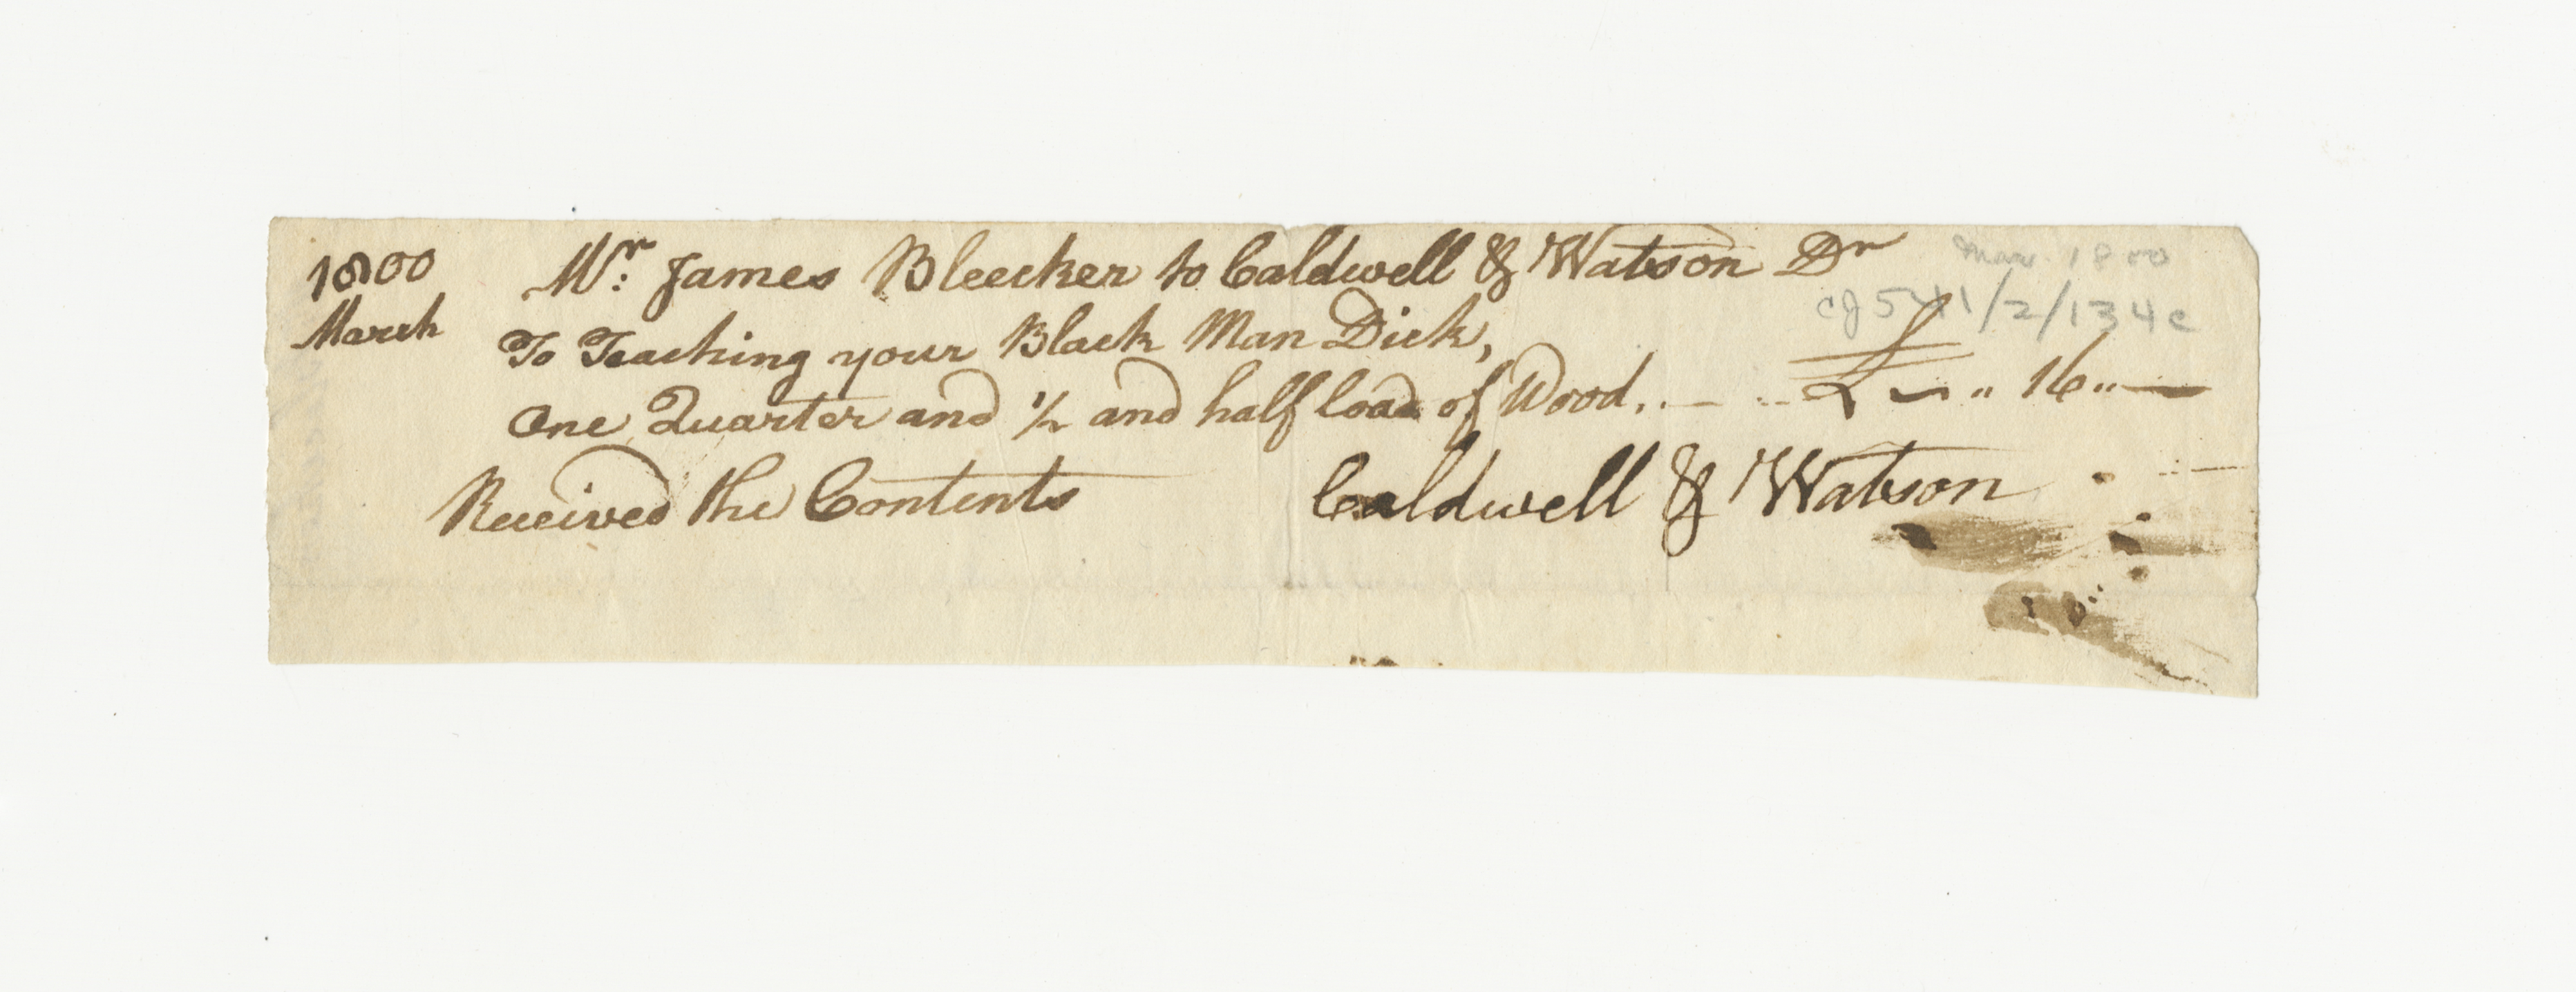 1800 Mr: James Bleecker to Caldwell & Watson Dr
Mar. 1800
cJ 541/2/134c
March To Teaching your Black Man Dick,
One Quarter and 1/2 and half load of Wood. £ ~ " 16 " —
Received the Contents Caldwell & Watson